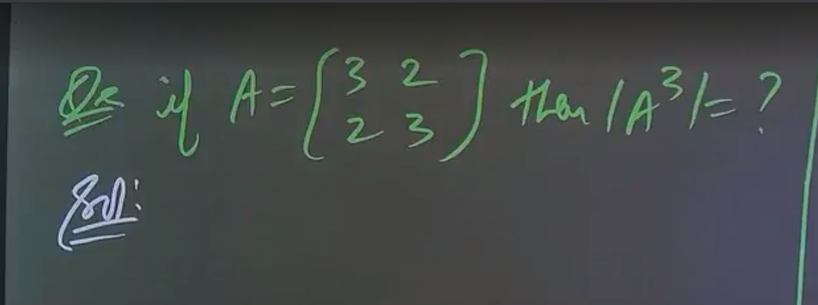 Qs if A = [3 2 2 3] then |A³| = ?
Sol: